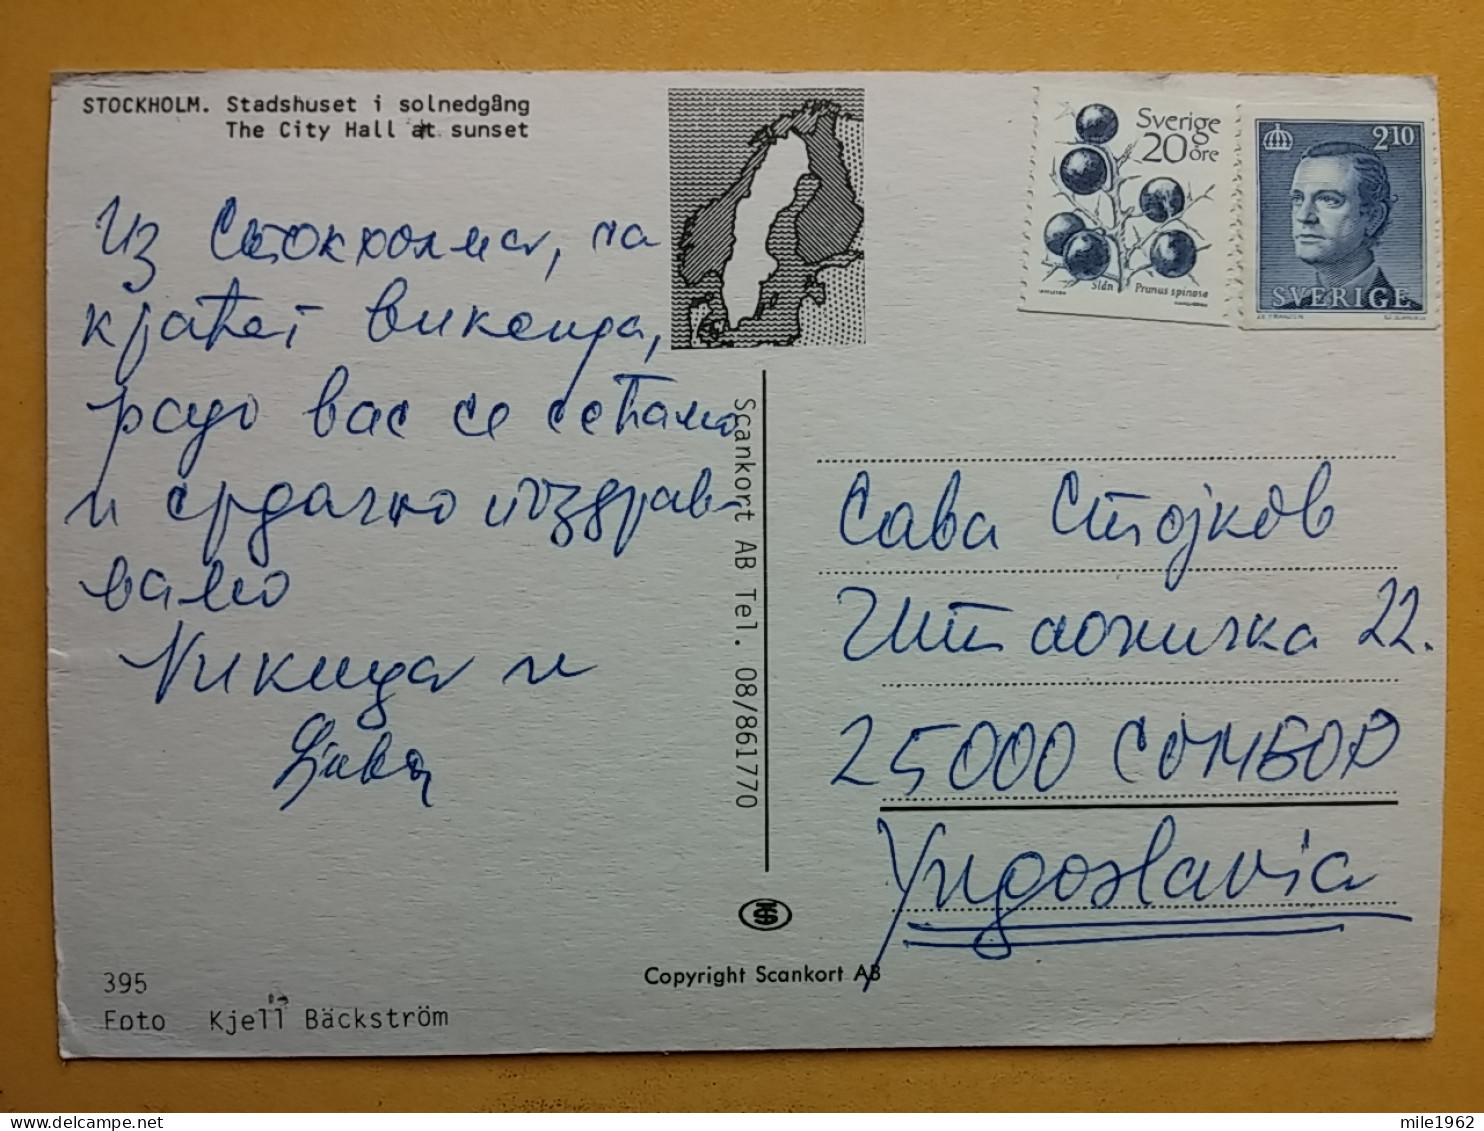 STOCKHOLM. Stadshuset i solnedgång
The City Hall at sunset
Из Стокхолма, са
краћег викенда,
радо вас се сећамо
и срдачно поздрав-
вамо
Никица и
Љубa
Scankort AB Tel. 08/861770
Sverige
20 öre
Slån Prunus spinosa
2.10
SVERIGE
Сава Стојков
22.
25000 СОМБОР
Yugoslavia
395
Foto Kjell Bäckström
Copyright Scankort AB
mile1962